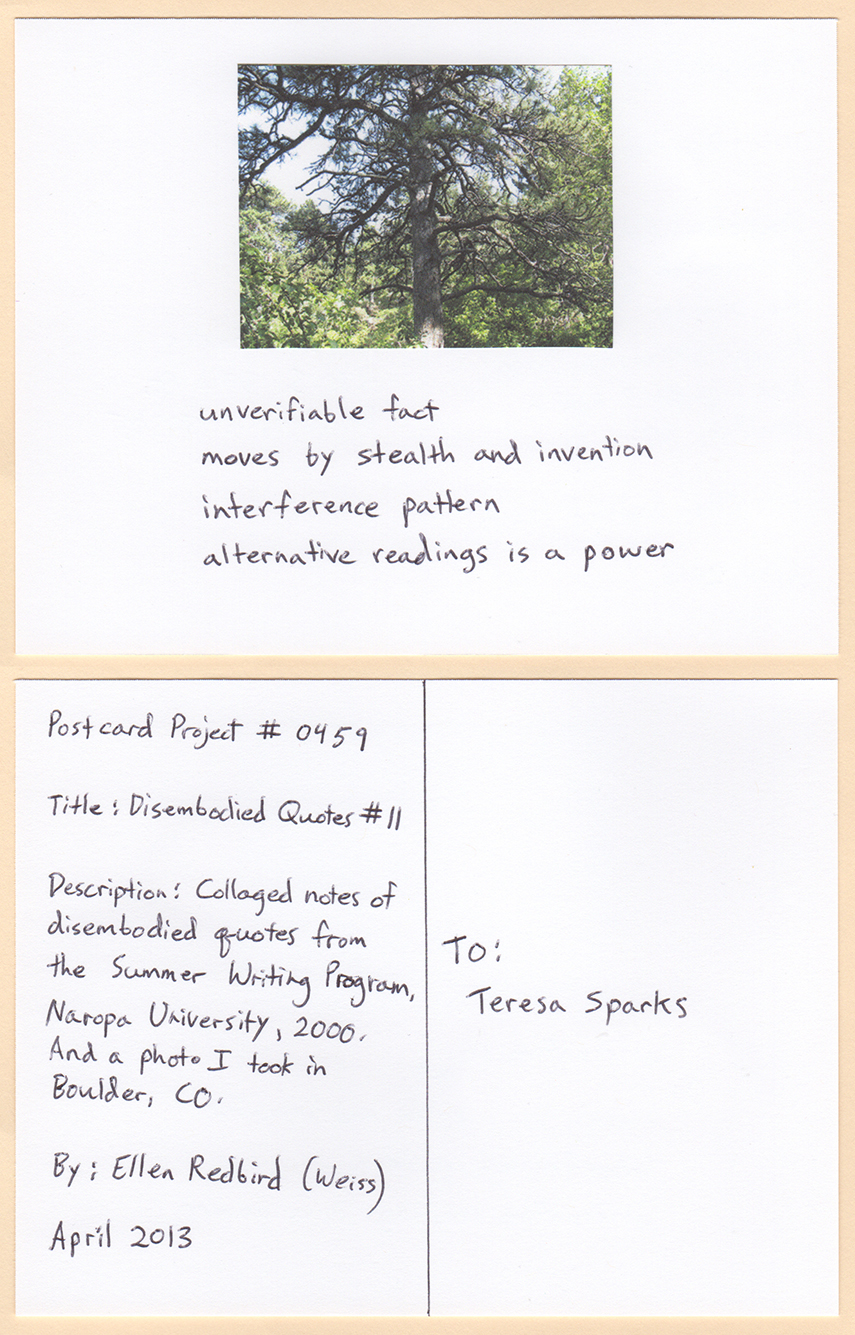 unverifiable fact
moves by stealth and invention
interference pattern
alternative readings is a power
Postcard Project # 0459
Title: Disembodied Quotes #11
Description: Collaged notes of
disembodied quotes from
the Summer Writing Program,
Naropa University, 2000.
And a photo I took in
Boulder, CO.
By: Ellen Redbird (Weiss)
April 2013
To:
Teresa Sparks